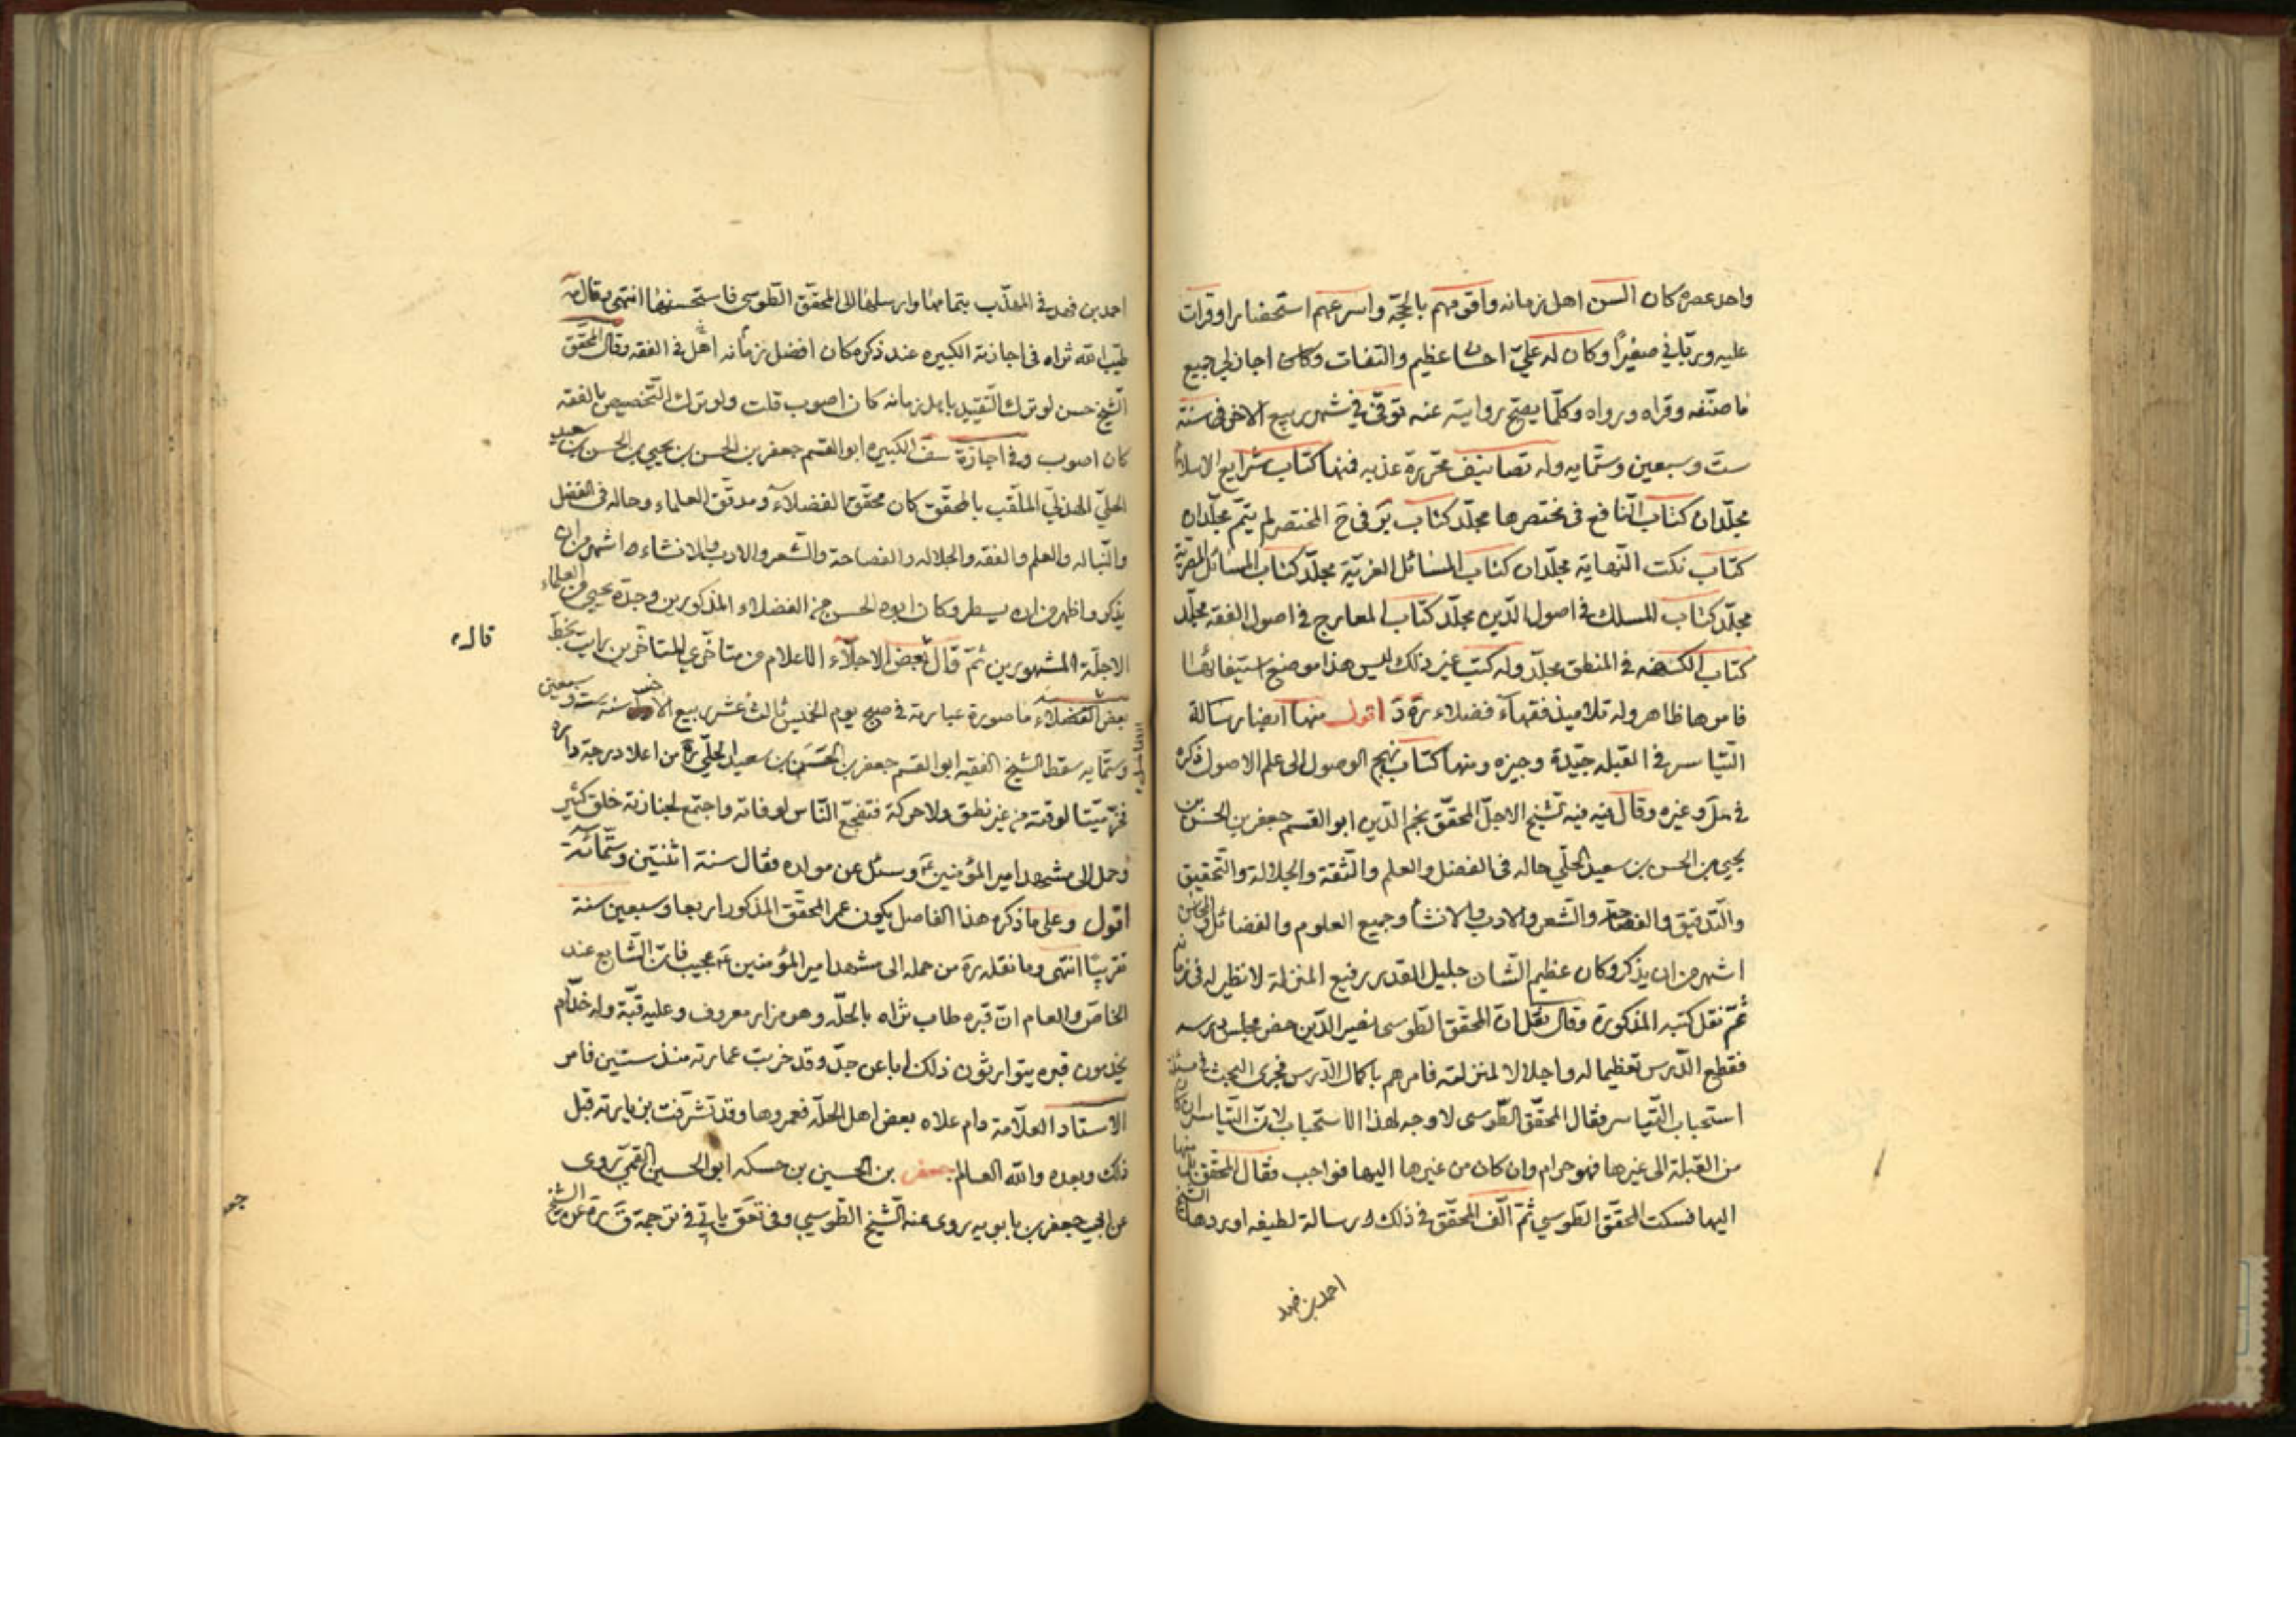 واحد عصره كان السن اهل زمانه واقومهم بالحجة واسرعهم استحضارا وقرات
عليه وربّاني صغيرًا وكان له عليّ احسان عظيم والتفات وكان اجاز لي جميع
ما صنّفه وقراه ورواه وكلّما يصحّ روايته عنه توفّى في شهر ربيع الاخر في سنة
ست وسبعين وستمايه وله تصانيف محرّرة عذبه فمنها كتاب شرايع الاسلام
مجلّدان كتاب النّافع في مختصرها مجلّد كتاب بَر في حَ المختصر لم يتمّ مجلّدان
كتاب نكت النّهاية مجلّدان كتاب المسائل الغريّة مجلّد كتاب المسائل المصريّة
مجلّد كتاب المسلك في اصول الدّين مجلّد كتاب المعارج في اصول الفقه مجلّد
كتاب الكهنه في المنطق مجلّد وله كتب غير ذلك ليس هذا موضع استيفائها
فامرها ظاهر وله تلاميذ فقهآء فضلاء رَه دَ اقول منها ايضا رسالة
التّياسر في القبله جيّدة وجيزه ومنها كتاب نهج الوصول الى علم الاصول ذكره
في مَل وغيره وقال فيه فيه شيخ الاجلّ المحقّق نجم الدّين ابو القسم جعفر بن الحسن بن
يحيى بن الحسن بن سعيد الحلّي حاله في الفضل والعلم والثّقة والجلالة والتّحقيق
والتّدقيق والفصاحة والشّعر والادب والانشاء وجميع العلوم والفضائل والمحاسن
اشهر من ان يذكر وكان عظيم الشّان جليل القدر رفيع المنزلة لا نظير له في زمانه
ثمّ نقل كتبه المذكورة وقال نقل انّ المحقّق الطّوسى نصير الدّين حضر مجلس درسه
فقطع الدّرس تعظيما له واجلالا لمنزلته فامرهم باكمال الدّرس فجرى البحث في مسئلة
استحباب التّياسر فقال المحقّق الطّوسى لا وجه لهذا الاستحباب لانّ التّياسر ان كان
من القبلة الى غيرها فهو حرام وان كان من غيرها اليها فواجب فقال المحقّق بل منها
اليها فسكت المحقّق الطّوسي ثمّ الّف المحقّق في ذلك رسالة لطيفه اوردها الشيخ
احمد بن فهد
احمد بن فهد في المهذّب بتمامها وارسلها الى المحقّق الطّوسى فاستحسنها انتهى وقال مه
طيّب الله ثراه في اجازته الكبيره عند ذكره كان افضل زمانه اهل في الفقه وقال المحقّق
الشّيخ حسن لو ترك التّقييد باهل زمانه كان اصوب قلت ولو ترك التّخصيص بالفقه
كان اصوب وفي اجازة الكبيره ابو القسم جعفر بن الحسن بن يحيى بن الحسن بن سعيد
الحلّي الهذليّ الملقّب بالمحقّق كان محقّق الفضلآء ومدقّق العلماء وحاله في الفضل
والنّباله والعلم والفقه والجلاله والفصاحة والشّعر والادب والانشاء اشهر من ان
يذكر واظهر من ان يسطر وكان ابوه الحسن من الفضلاء المذكورين وجدّه يحيى من العلماء
الاجلّة المشهورين ثمّ قال بعض الاجلّآء الاعلام من متاخّري المتاخّرين رايت بخطّ
قاله
بعض الفضلاء ما صورة عبارته في صبح يوم الخميس ثالث عشر ربيع الاخر سنه ست وسبعين
الفاضل
وستمايه سقط الشّيخ الفقيه ابو القسم جعفر بن الحَسَن بن سعيد الحلّي ره من اعلا درجة داره
فخرّ ميّتا لوقته من غير نطق ولا حركة فتفجّع النّاس لوفاته واجتمع لجنازته خلق كثير
وحمل الى مشهد امير المؤمنين ع وسئل عن مولده فقال سنة اثنتين وستّمائة
اقول وعلى ما ذكره هذا الفاضل يكون عمر المحقّق المذكور اربعا وسبعين سنة
تقريبًا انتهى وما نقله ره من حمله الى مشهد امير المؤمنين ع عجيب فانّ الشّايع عند
الخاصّ والعام انّ قبره طاب ثراه بالحلّه وهو مزار معروف وعليه قبّة وله خدّام
يخدمون قبره يتوارثون ذلك ابا عن جدّ وقد خربت عمارته منذ ستين فامر
الاستاد العلّامة دام علاه بعض اهل الحلّه فعمروها وقد تشرّفت بزيارته قبل
ذلك وبعده والله العالم جعفر بن الحسين بن حسكه ابو الحسين القمّي روى
عن ابي جعفر بن بابويه روى عنه الشّيخ الطّوسي وفي تعق ياتي في ترجمة الشيخ
جعـ